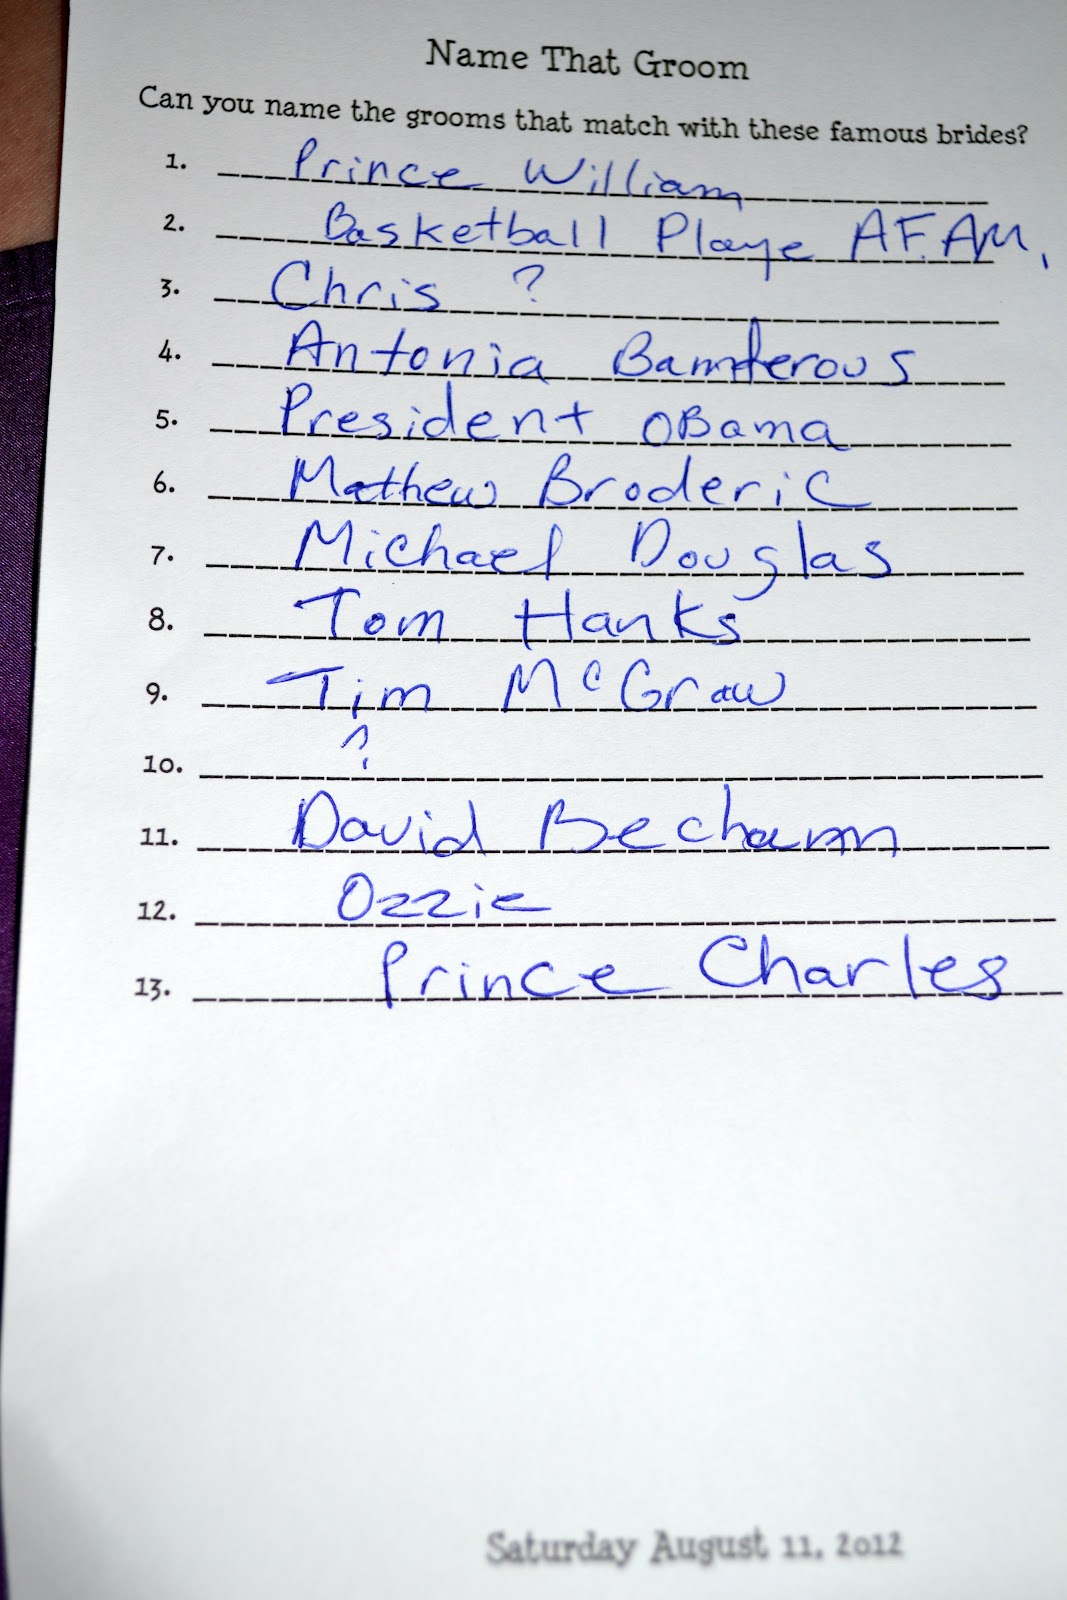 Name That Groom
Can you name the grooms that match with these famous brides?
1. Prince William
2. Basketball Playe AF.AM.
3. Chris ?
4. Antonia Bamterous
5. President OBama
6. Mathew Broderic
7. Michael Douglas
8. Tom Hanks
9. Tim McGraw
10. ?
11. David Bechamm
12. Ozzie
13. Prince Charles
Saturday August 11, 2012